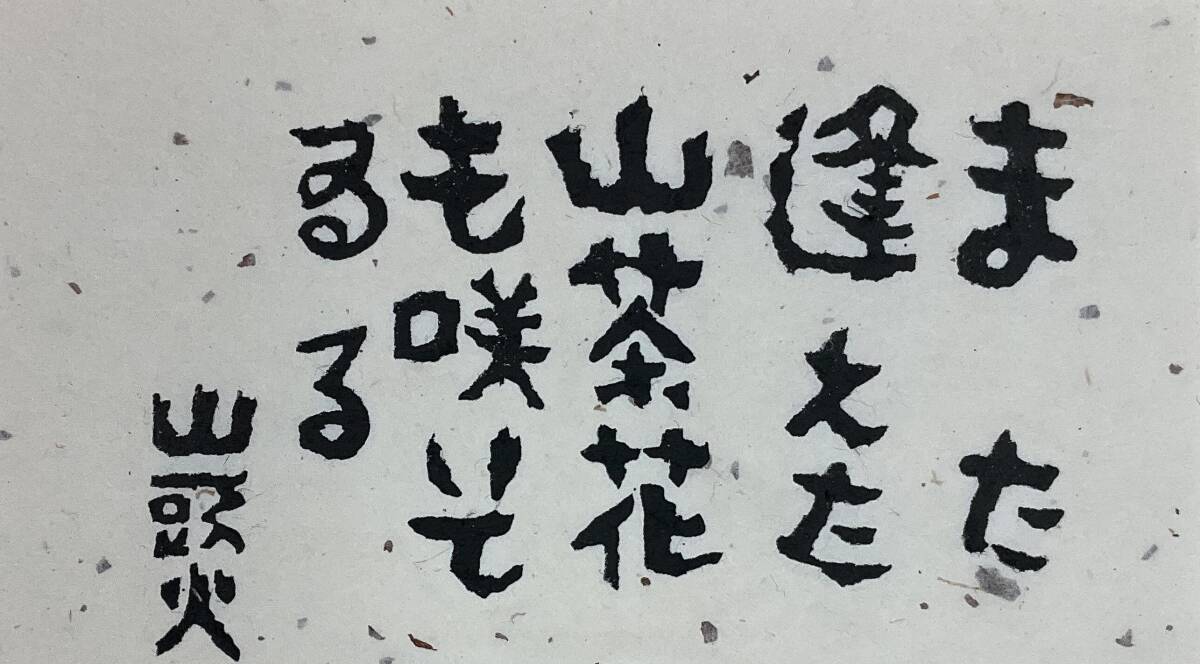 また
逢へた
山茶花
も咲いて
ゐる
山頭火